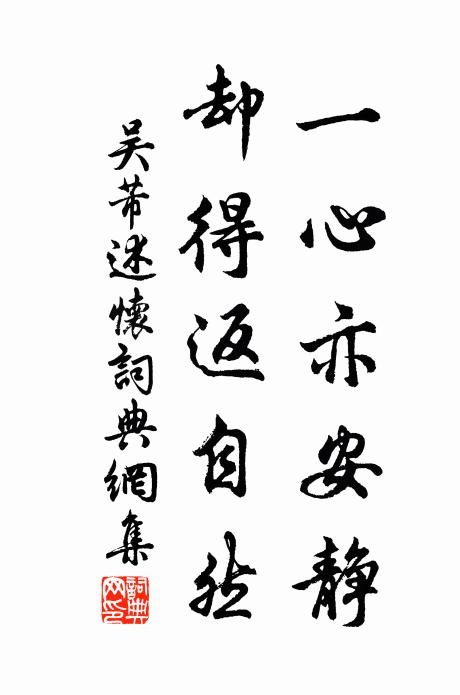 一心亦安靜
却得返自然
吴芾述懷詞典網集
詞典网印